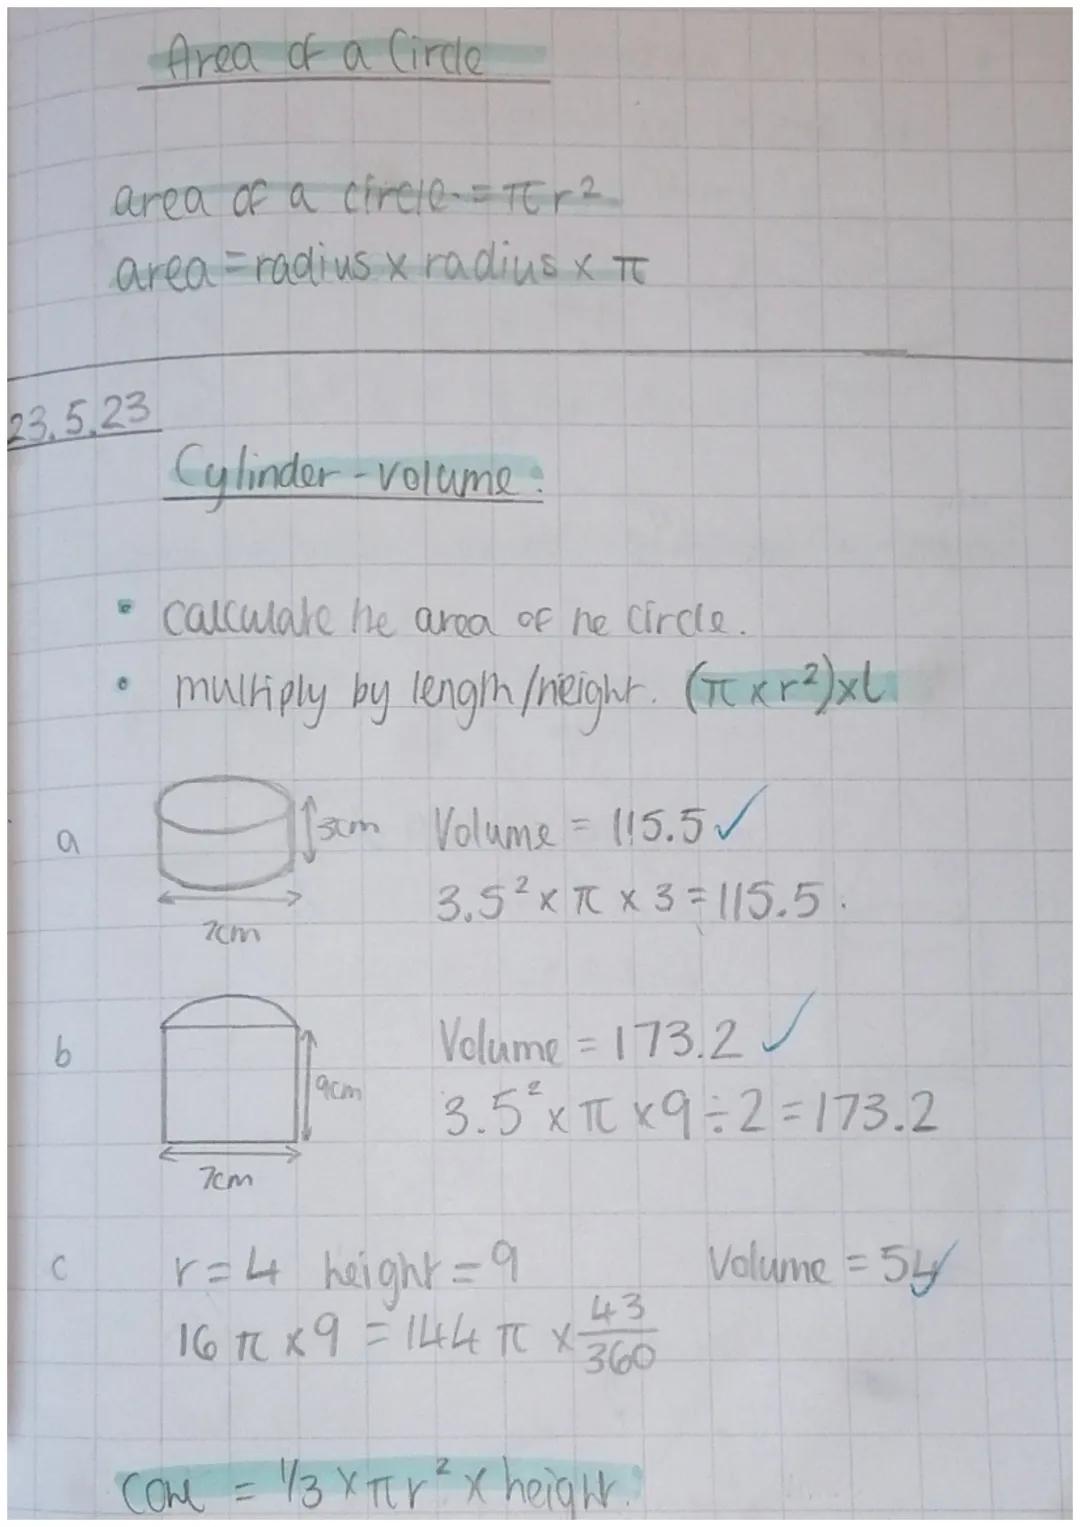 Area of a Circle
area of a circle = πr²
area = radius x radius x π
23.5.23
Cylinder - volume:
• calculate the area of the circle.
• multiply by length/height. (π x r²) x l
a
3cm
7cm
Volume = 115.5 ✓
3.5² x π x 3 = 115.5.
b
9cm
7cm
Volume = 173.2 ✓
3.5² x π x 9 ÷ 2 = 173.2
c r = 4 height = 9 Volume = 54 ✓
16 π x 9 = 144 π x 43/360
cone = 1/3 x πr² x height.